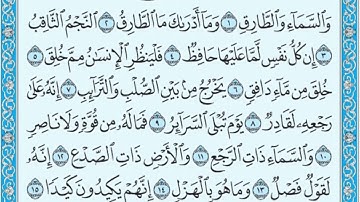 وَالسَّمَاءِ وَالطَّارِقِ ۝١ وَمَا أَدْرَىٰكَ مَا الطَّارِقُ ۝٢ النَّجْمُ الثَّاقِبُ
۝٣ إِن كُلُّ نَفْسٍ لَّمَّا عَلَيْهَا حَافِظٌ ۝٤ فَلْيَنظُرِ الْإِنسَٰنُ مِمَّ خُلِقَ ۝٥
خُلِقَ مِن مَّاءٍ دَافِقٍ ۝٦ يَخْرُجُ مِن بَيْنِ الصُّلْبِ وَالتَّرَائِبِ ۝٧ إِنَّهُ عَلَىٰ
رَجْعِهِ لَقَادِرٌ ۝٨ يَوْمَ تُبْلَى السَّرَائِرُ ۝٩ فَمَا لَهُ مِن قُوَّةٍ وَلَا نَاصِرٍ
۝١٠ وَالسَّمَاءِ ذَاتِ الرَّجْعِ ۝١١ وَالْأَرْضِ ذَاتِ الصَّدْعِ ۝١٢ إِنَّهُ
لَقَوْلٌ فَصْلٌ ۝١٣ وَمَا هُوَ بِالْهَزْلِ ۝١٤ إِنَّهُمْ يَكِيدُونَ كَيْدًا ۝١٥